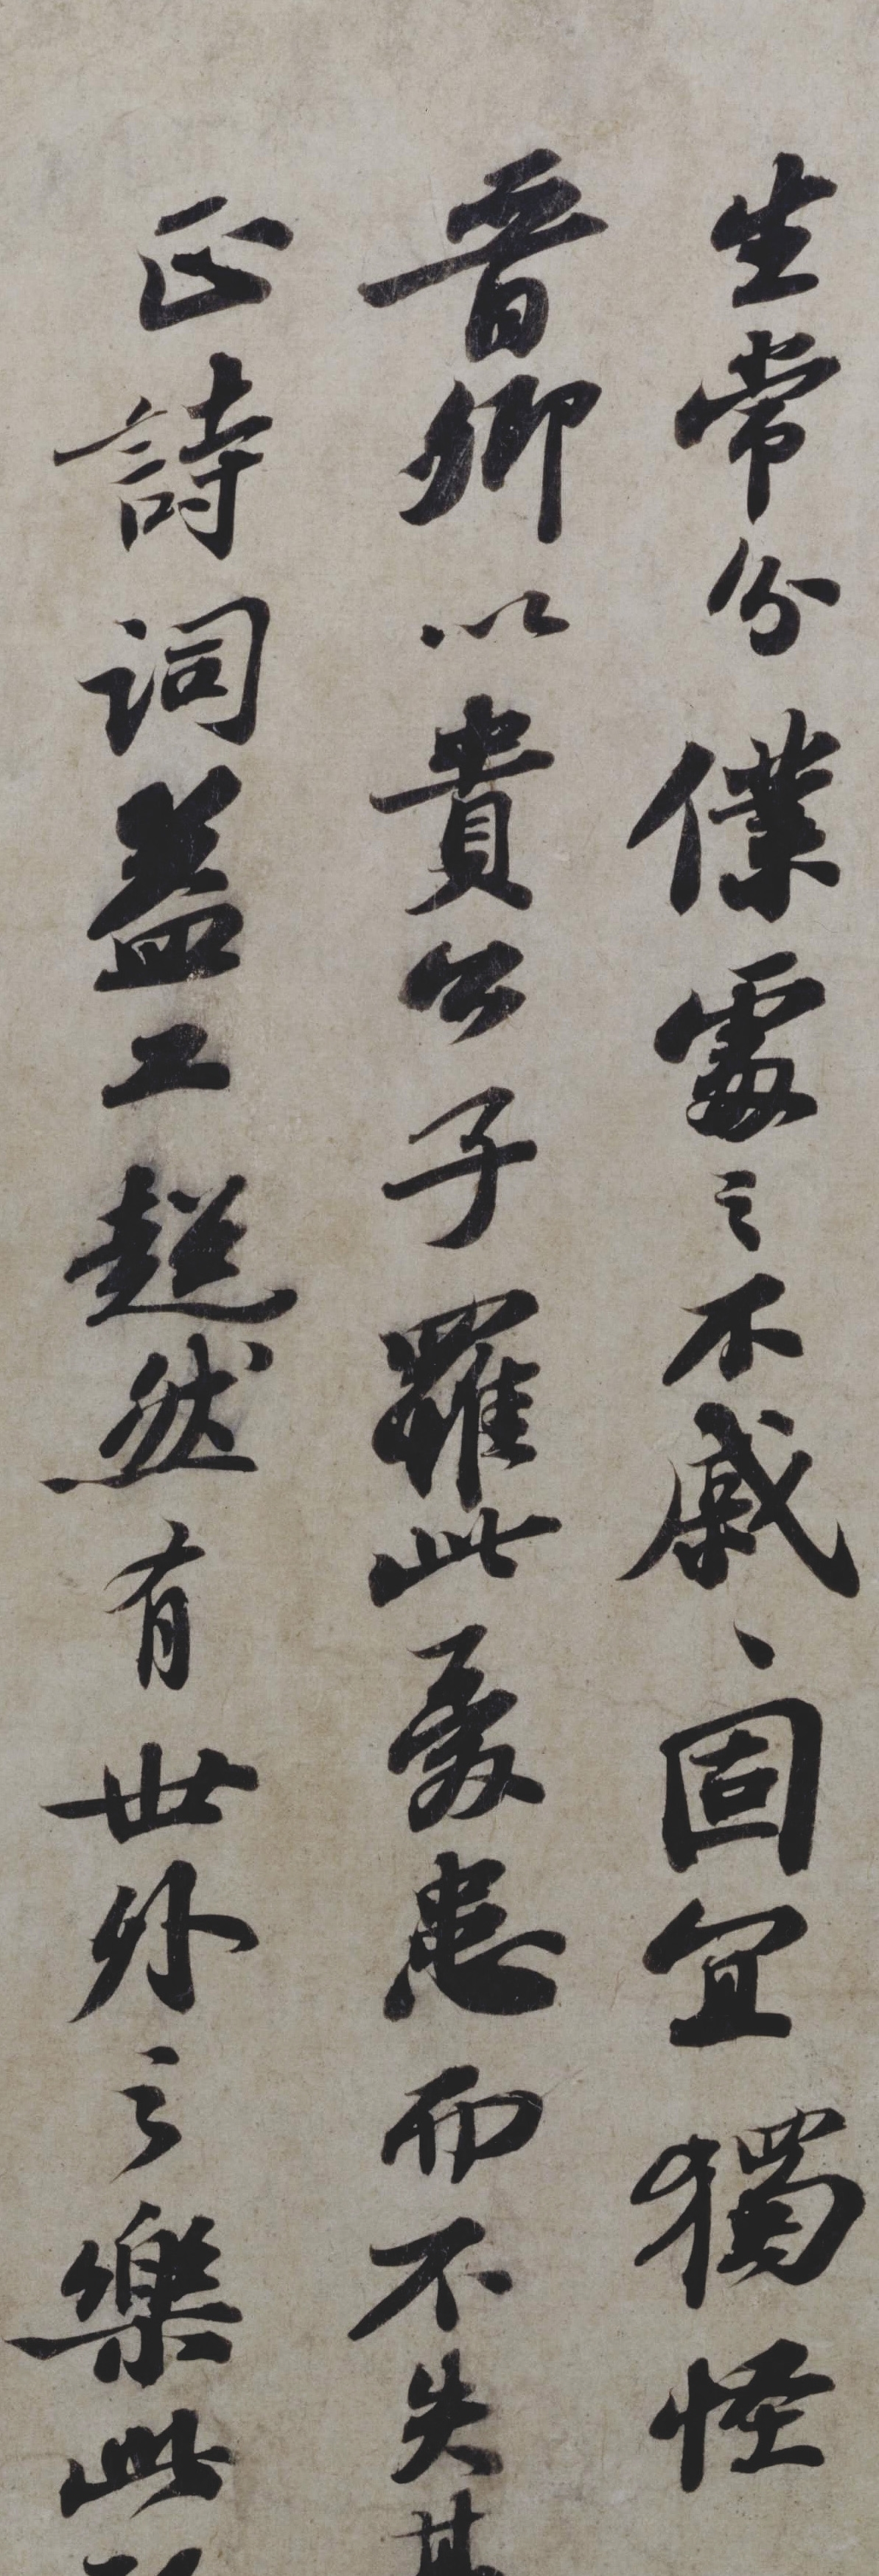 生常分僕處之不戚〻固宜獨怪
晉卿以貴公子罹此憂患而不失其
正詩詞益工超然有世外之樂此